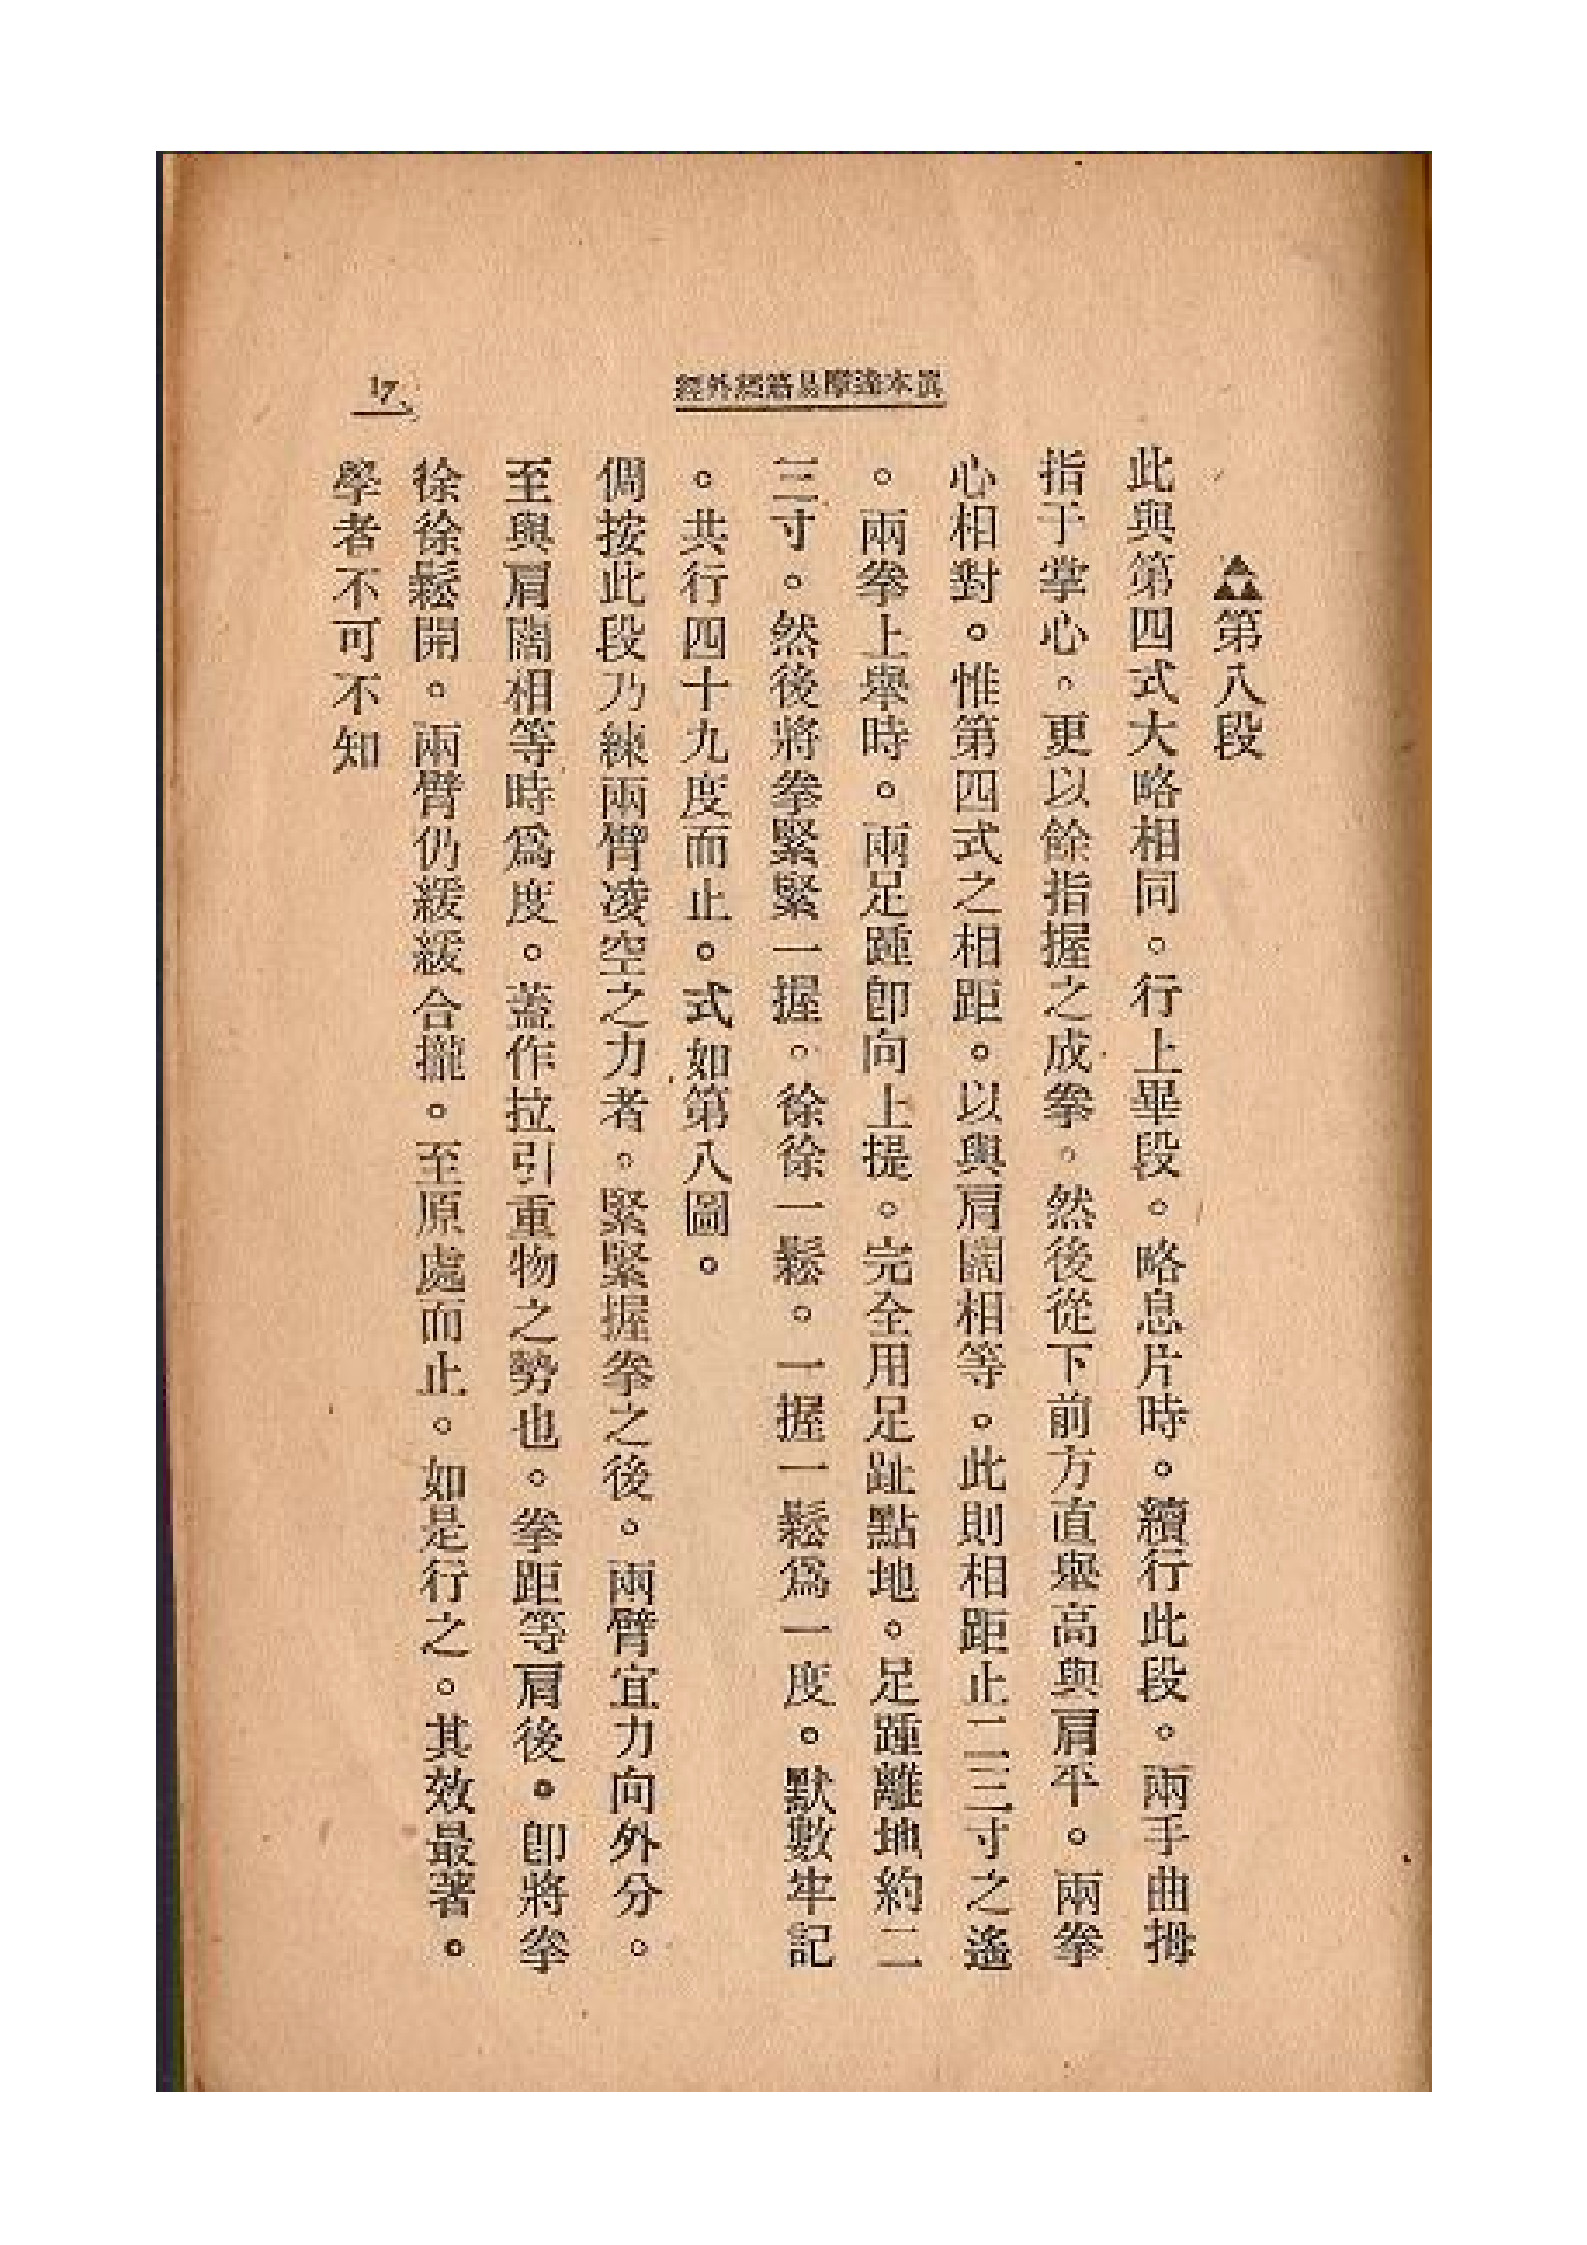 眞本達摩易筋經外經
17
▲第八段
此與第四式大略相同。行上畢段。略息片時。續行此段。兩手曲拇
指于掌心。更以餘指握之成拳。然後從下前方直舉高與肩平。兩拳
心相對。惟第四式之相距。以與肩闊相等。此則相距止二三寸之遙
。兩拳上舉時。兩足踵卽向上提。完全用足趾點地。足踵離地約二
三寸。然後將拳緊緊一握。徐徐一鬆。一握一鬆爲一度。默數牢記
。共行四十九度而止。式如第八圖。
倜按此段乃練兩臂凌空之力者。緊緊握拳之後。兩臂宜力向外分。
至與肩闊相等時爲度。蓋作拉引重物之勢也。拳距等肩後。卽將拳
徐徐鬆開。兩臂仍緩緩合攏。至原處而止。如是行之。其效最著。
學者不可不知